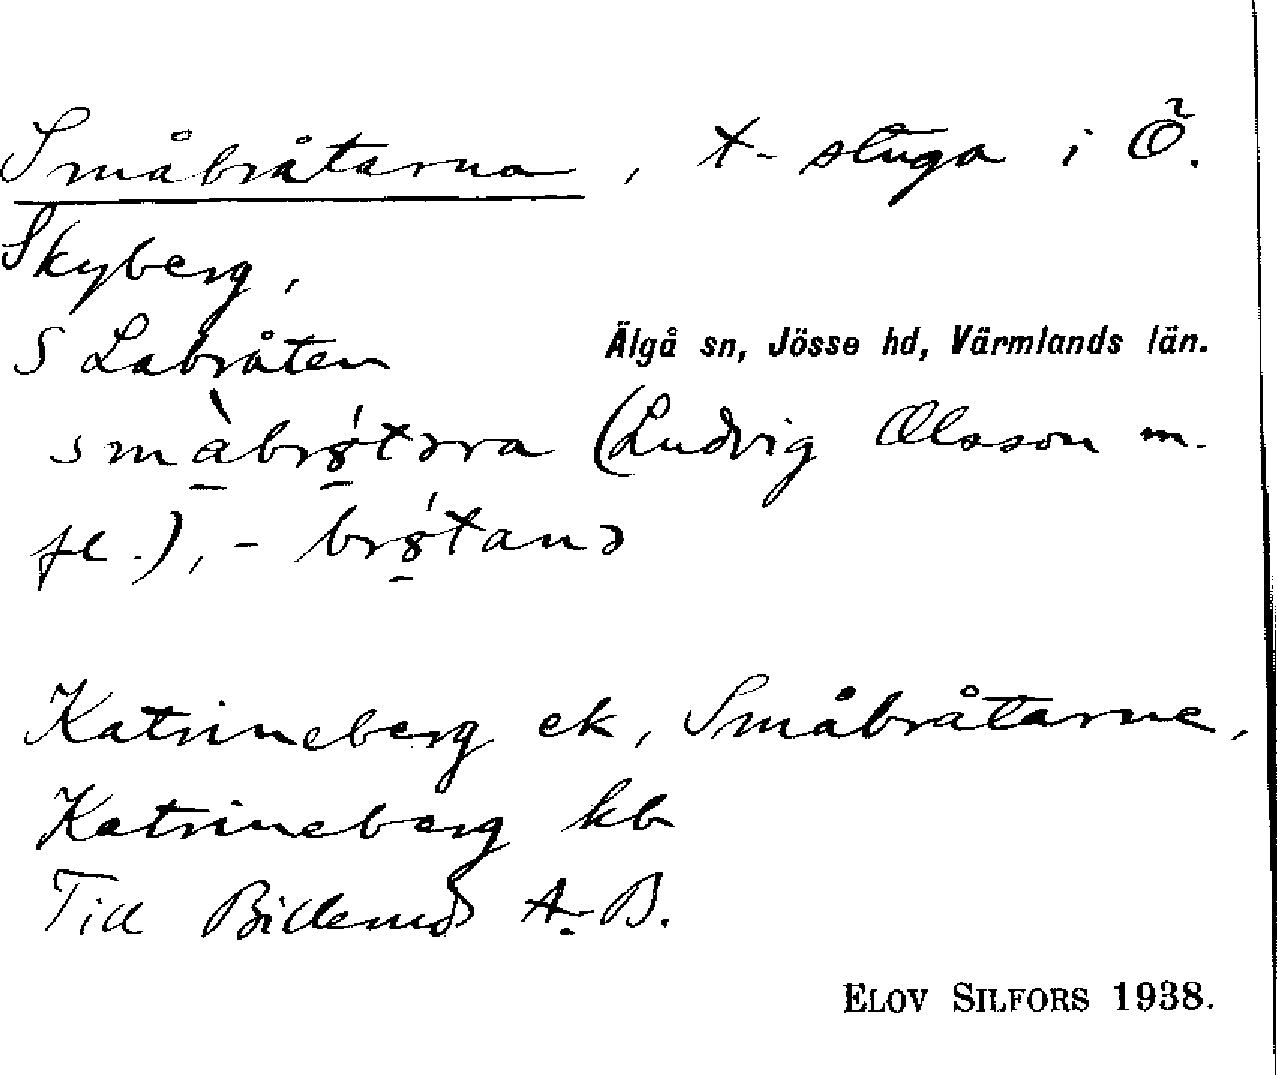 Småbråtarna, †-stuga i Ö.
Skyberg,
S Labråten
Älgå sn, Jösse hd, Värmlands län.
(Ludvig Olsson m.
fl.), -
Katrineberg ek, Småbråtarne,
Katrineberg kb
Till Billerud A.-B.
ELOV SILFORS 1938.